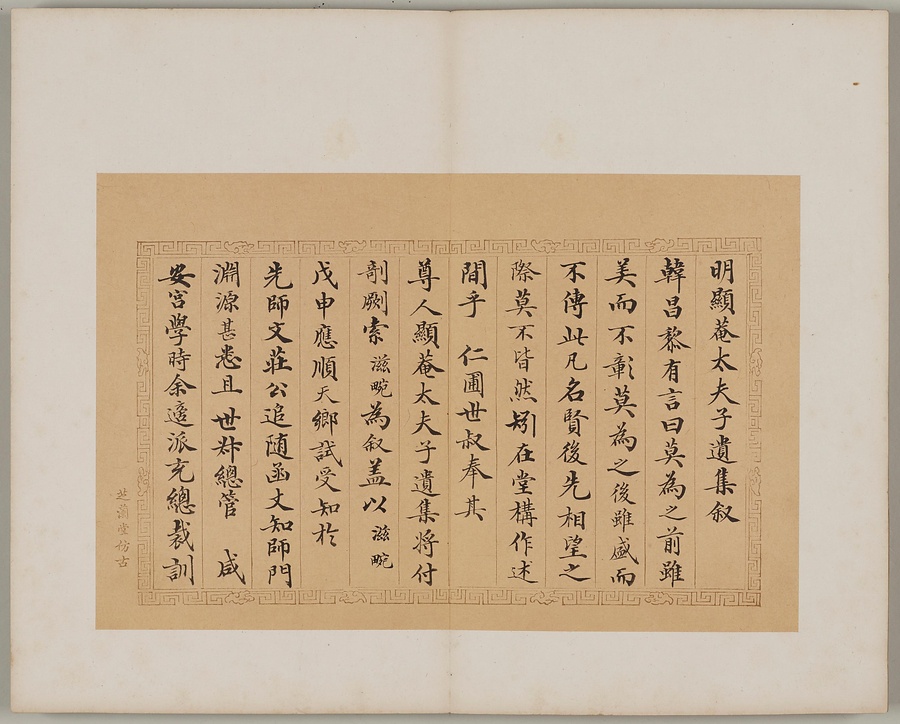 明顯菴太夫子遺集叙
韓昌黎有言曰莫為之前雖
美而不彰莫為之後雖盛而
不傳此凡名賢後先相望之
際莫不皆然矧在堂構作述
間乎 仁圃世叔奉其
尊人顯菴太夫子遺集將付
剞劂索滋畹為叙盖以滋畹
戊申應順天鄉試受知於
先師文莊公追随函丈知師門
淵源甚悉且世叔總管 咸
安宮學時余適派充總裁訓
芝蘭堂仿古